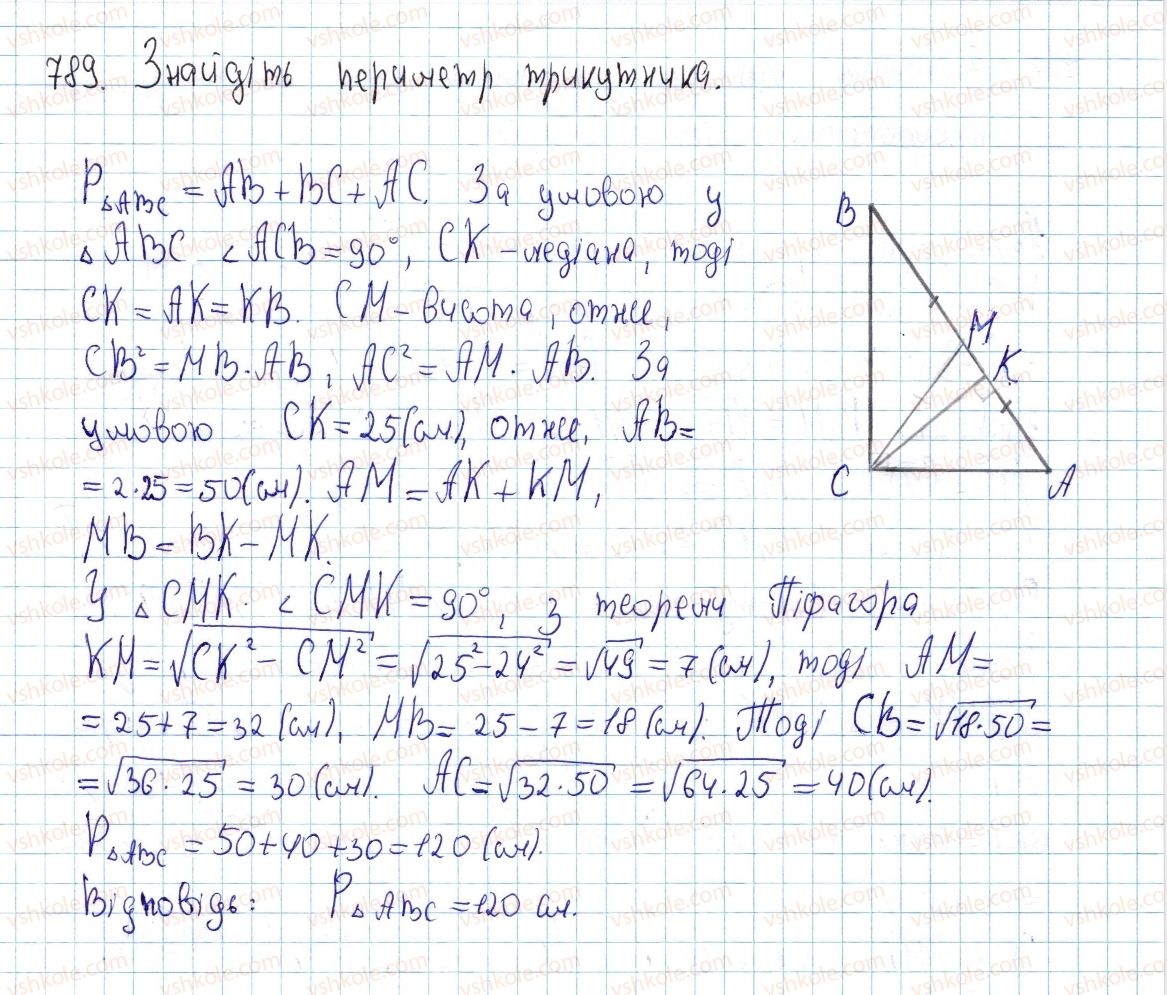 789. Знайдіть периметр трикутника.
P△ABC = AB + BC + AC. За умовою у
△ABC ∠ACB = 90°, CK – медіана, тоді
CK = AK = KB. CM – висота, отже,
CB² = MB · AB, AC² = AM · AB. За
умовою CK = 25 (см), отже, AB =
= 2 · 25 = 50 (см). AM = AK + KM,
MB = BK – MK.
У △CMK. ∠CMK = 90°, з теореми Піфагора
KM = √(CK² – CM²) = √(25² – 24²) = √49 = 7 (см), тоді AM =
= 25 + 7 = 32 (см), MB = 25 – 7 = 18 (см). Тоді CB = √(18 · 50) =
= √(36 · 25) = 30 (см). AC = √(32 · 50) = √(64 · 25) = 40 (см).
P△ABC = 50 + 40 + 30 = 120 (см).
Відповідь: P△ABC = 120 см.
B
M
K
C
A
vshkole.com